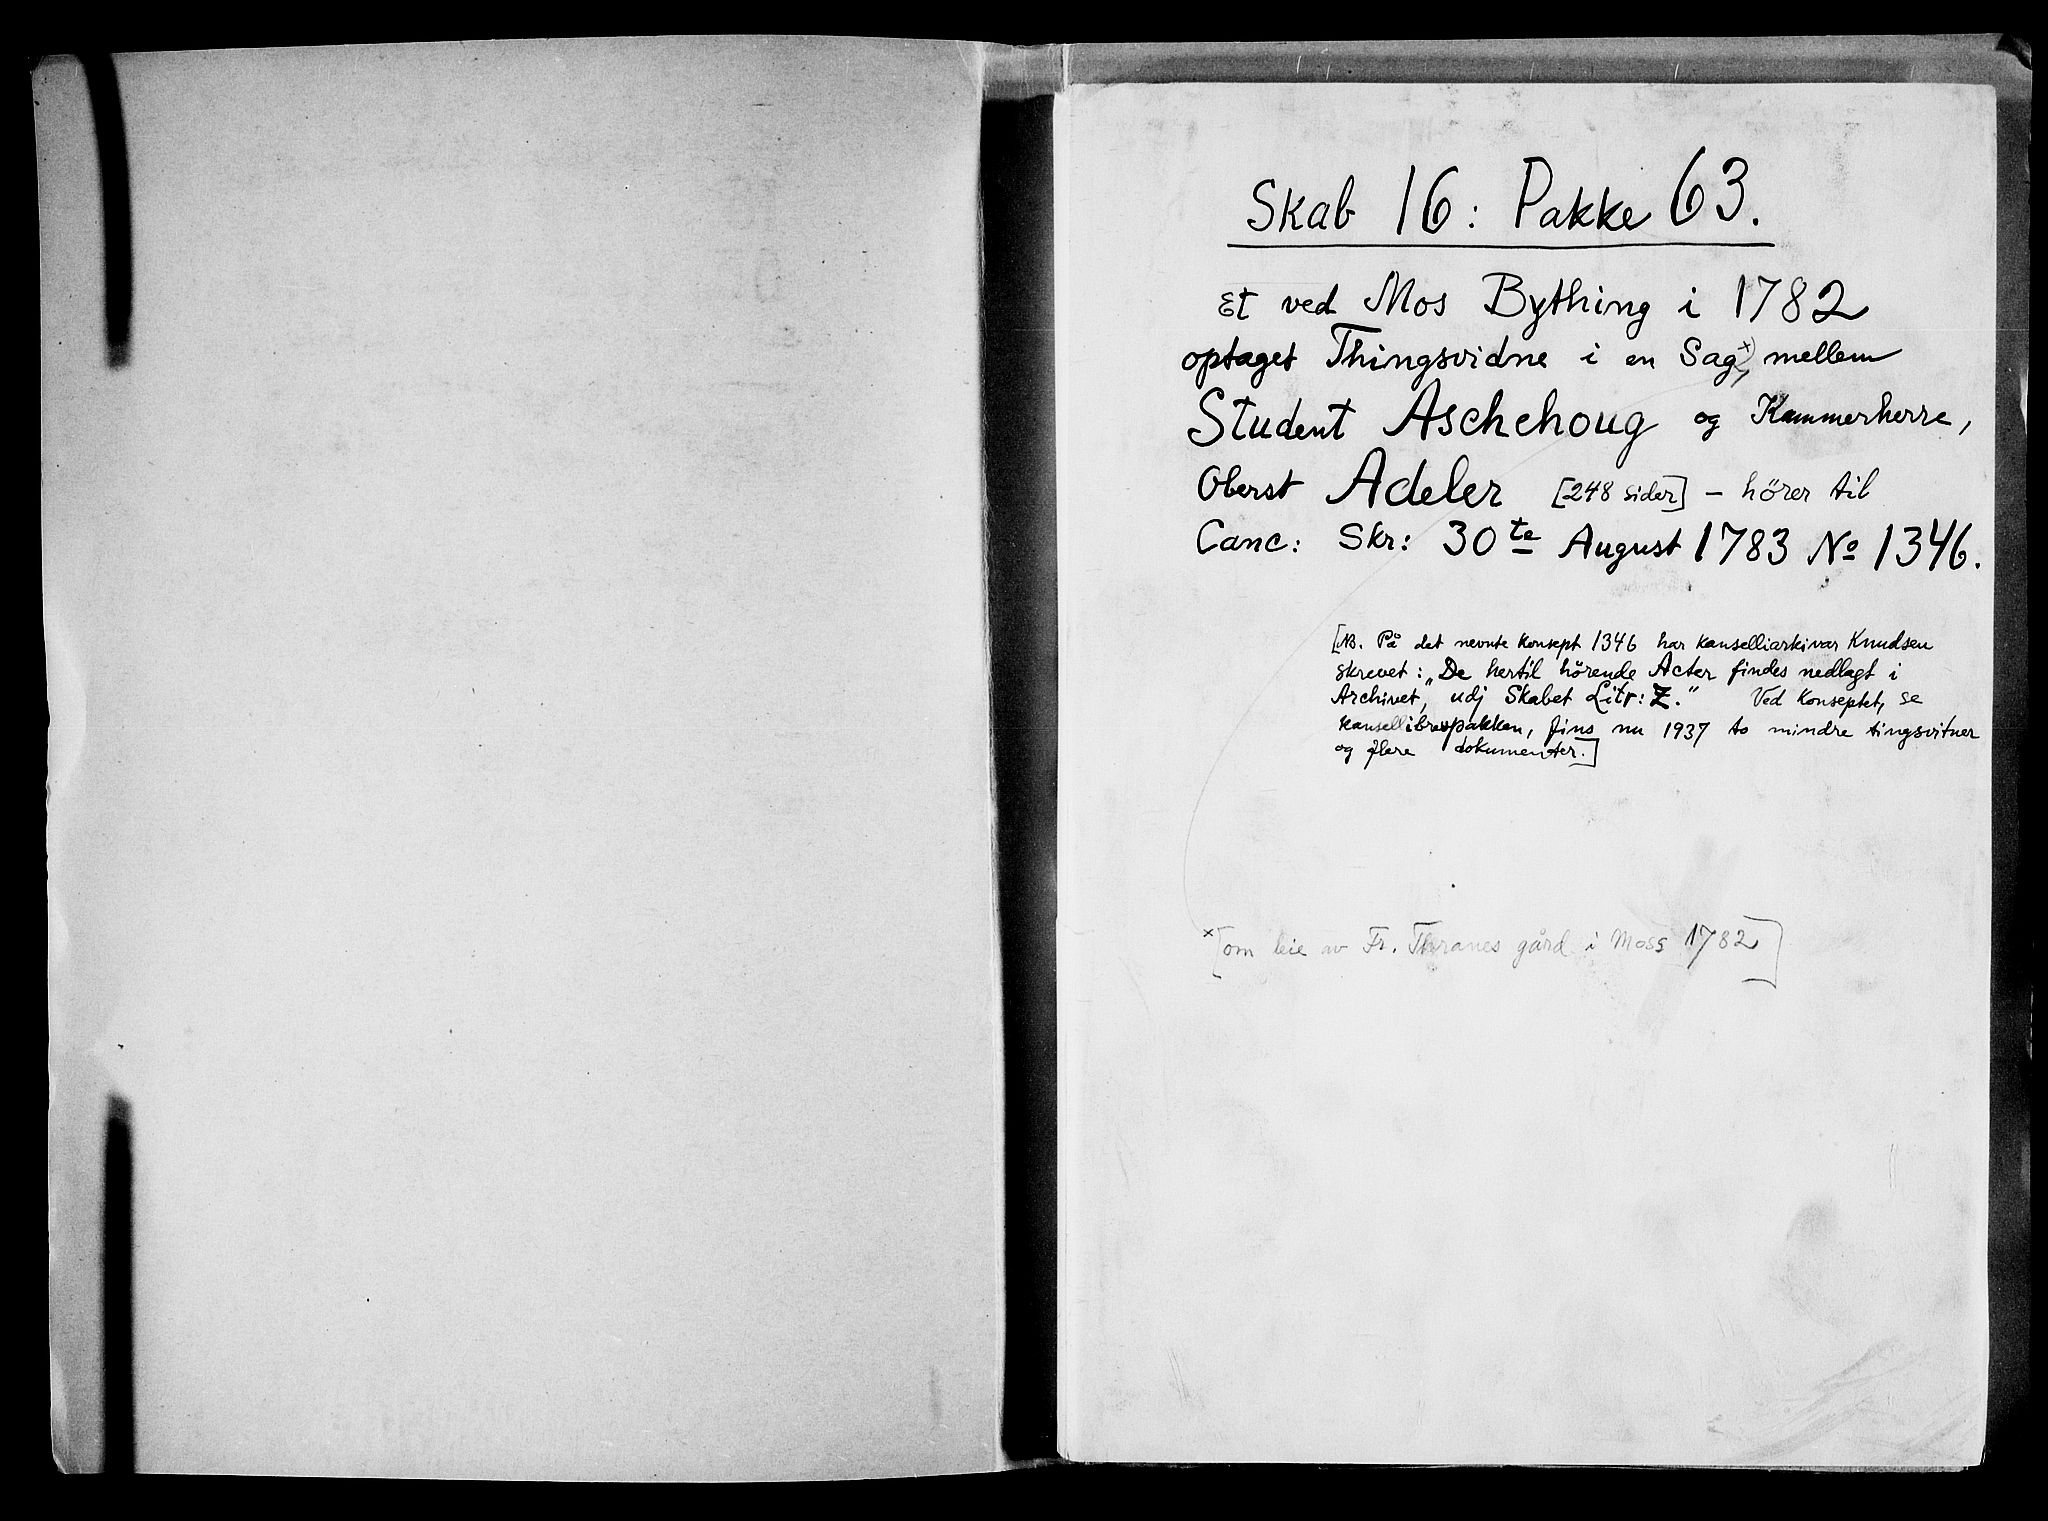 Skab 16: Pakke 63.
Et ved Mos Bything i 1782
optaget Thingsvidne i en Sag x), mellem
Student Aschehoug og Kammerherre,
Oberst Adeler [248 sider] – hörer til
Canc: Skr: 30te August 1783 No 1346.
[NB. På det nevnte konsept 1346 har kanselliarkivar Knudsen
skrevet: „De hertil hörende Acter findes nedlagt i
Archivet, udj Skabet Litr: Z." Ved konseptet, se
kansellibrevpakken, fins nu 1937 to mindre tingsvitner
og flere dokumenter.]
x [om leie av Fr. Thranes gård i Moss 1782]